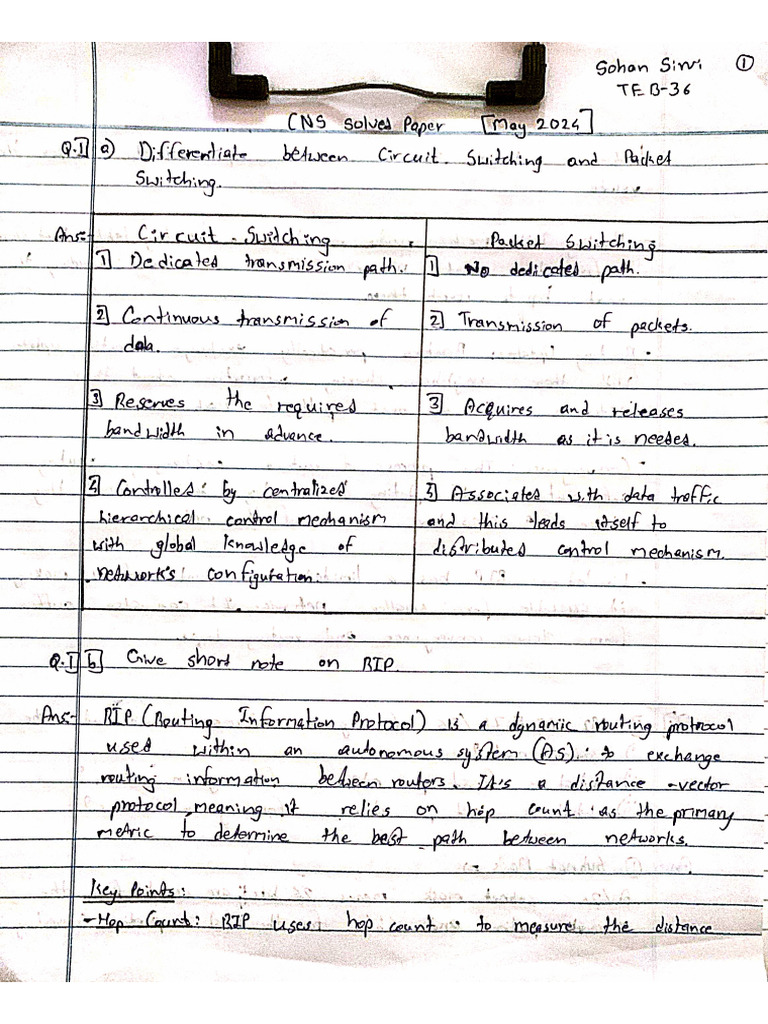 Sohan Sirvi ①
TE B-36
CNS Solved Paper [May 2024]
Q.1 a) Differentiate between Circuit Switching and Packet
Switching.
Ans:- Circuit Switching
1 Dedicated transmission path.
2 Continuous transmission of
data.
3 Reserves the required
bandwidth in advance.
4 Controlled by centralized
hierarchical control mechanism
with global knowledge of
network's configuration.
Packet Switching
1 No dedicated path.
2 Transmission of packets.
3 Acquires and releases
bandwidth as it is needed.
3 Associated with data traffic
and this leads itself to
distributed control mechanism.
Q.1 b Give short note on RIP.
Ans:- RIP (Routing Information Protocol) is a dynamic routing protocol
used within an autonomous system (AS) to exchange
routing information between routers. It's a distance-vector
protocol, meaning it relies on hop count as the primary
metric to determine the best path between networks.
Key Points:
- Hop Count: RIP uses hop count to measure the distance